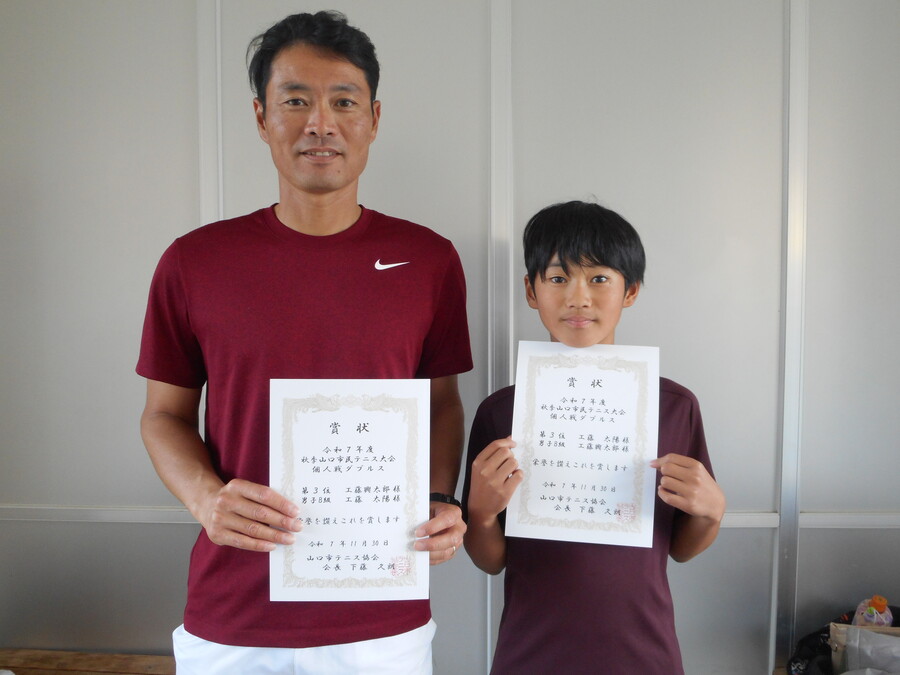 賞状
令和7年度
秋季山口市民テニス大会
個人戦ダブルス
第3位 工藤興太郎様
男子B級 工藤 太陽様
栄誉を讃えこれを賞します
令和7年11月30日
山口市テニス協会
会長 下藤 久朗
賞状
令和7年度
秋季山口市民テニス大会
個人戦ダブルス
第3位 工藤 太陽様
男子B級 工藤興太郎様
栄誉を讃えこれを賞します
令和7年11月30日
山口市テニス協会
会長 下藤 久朗